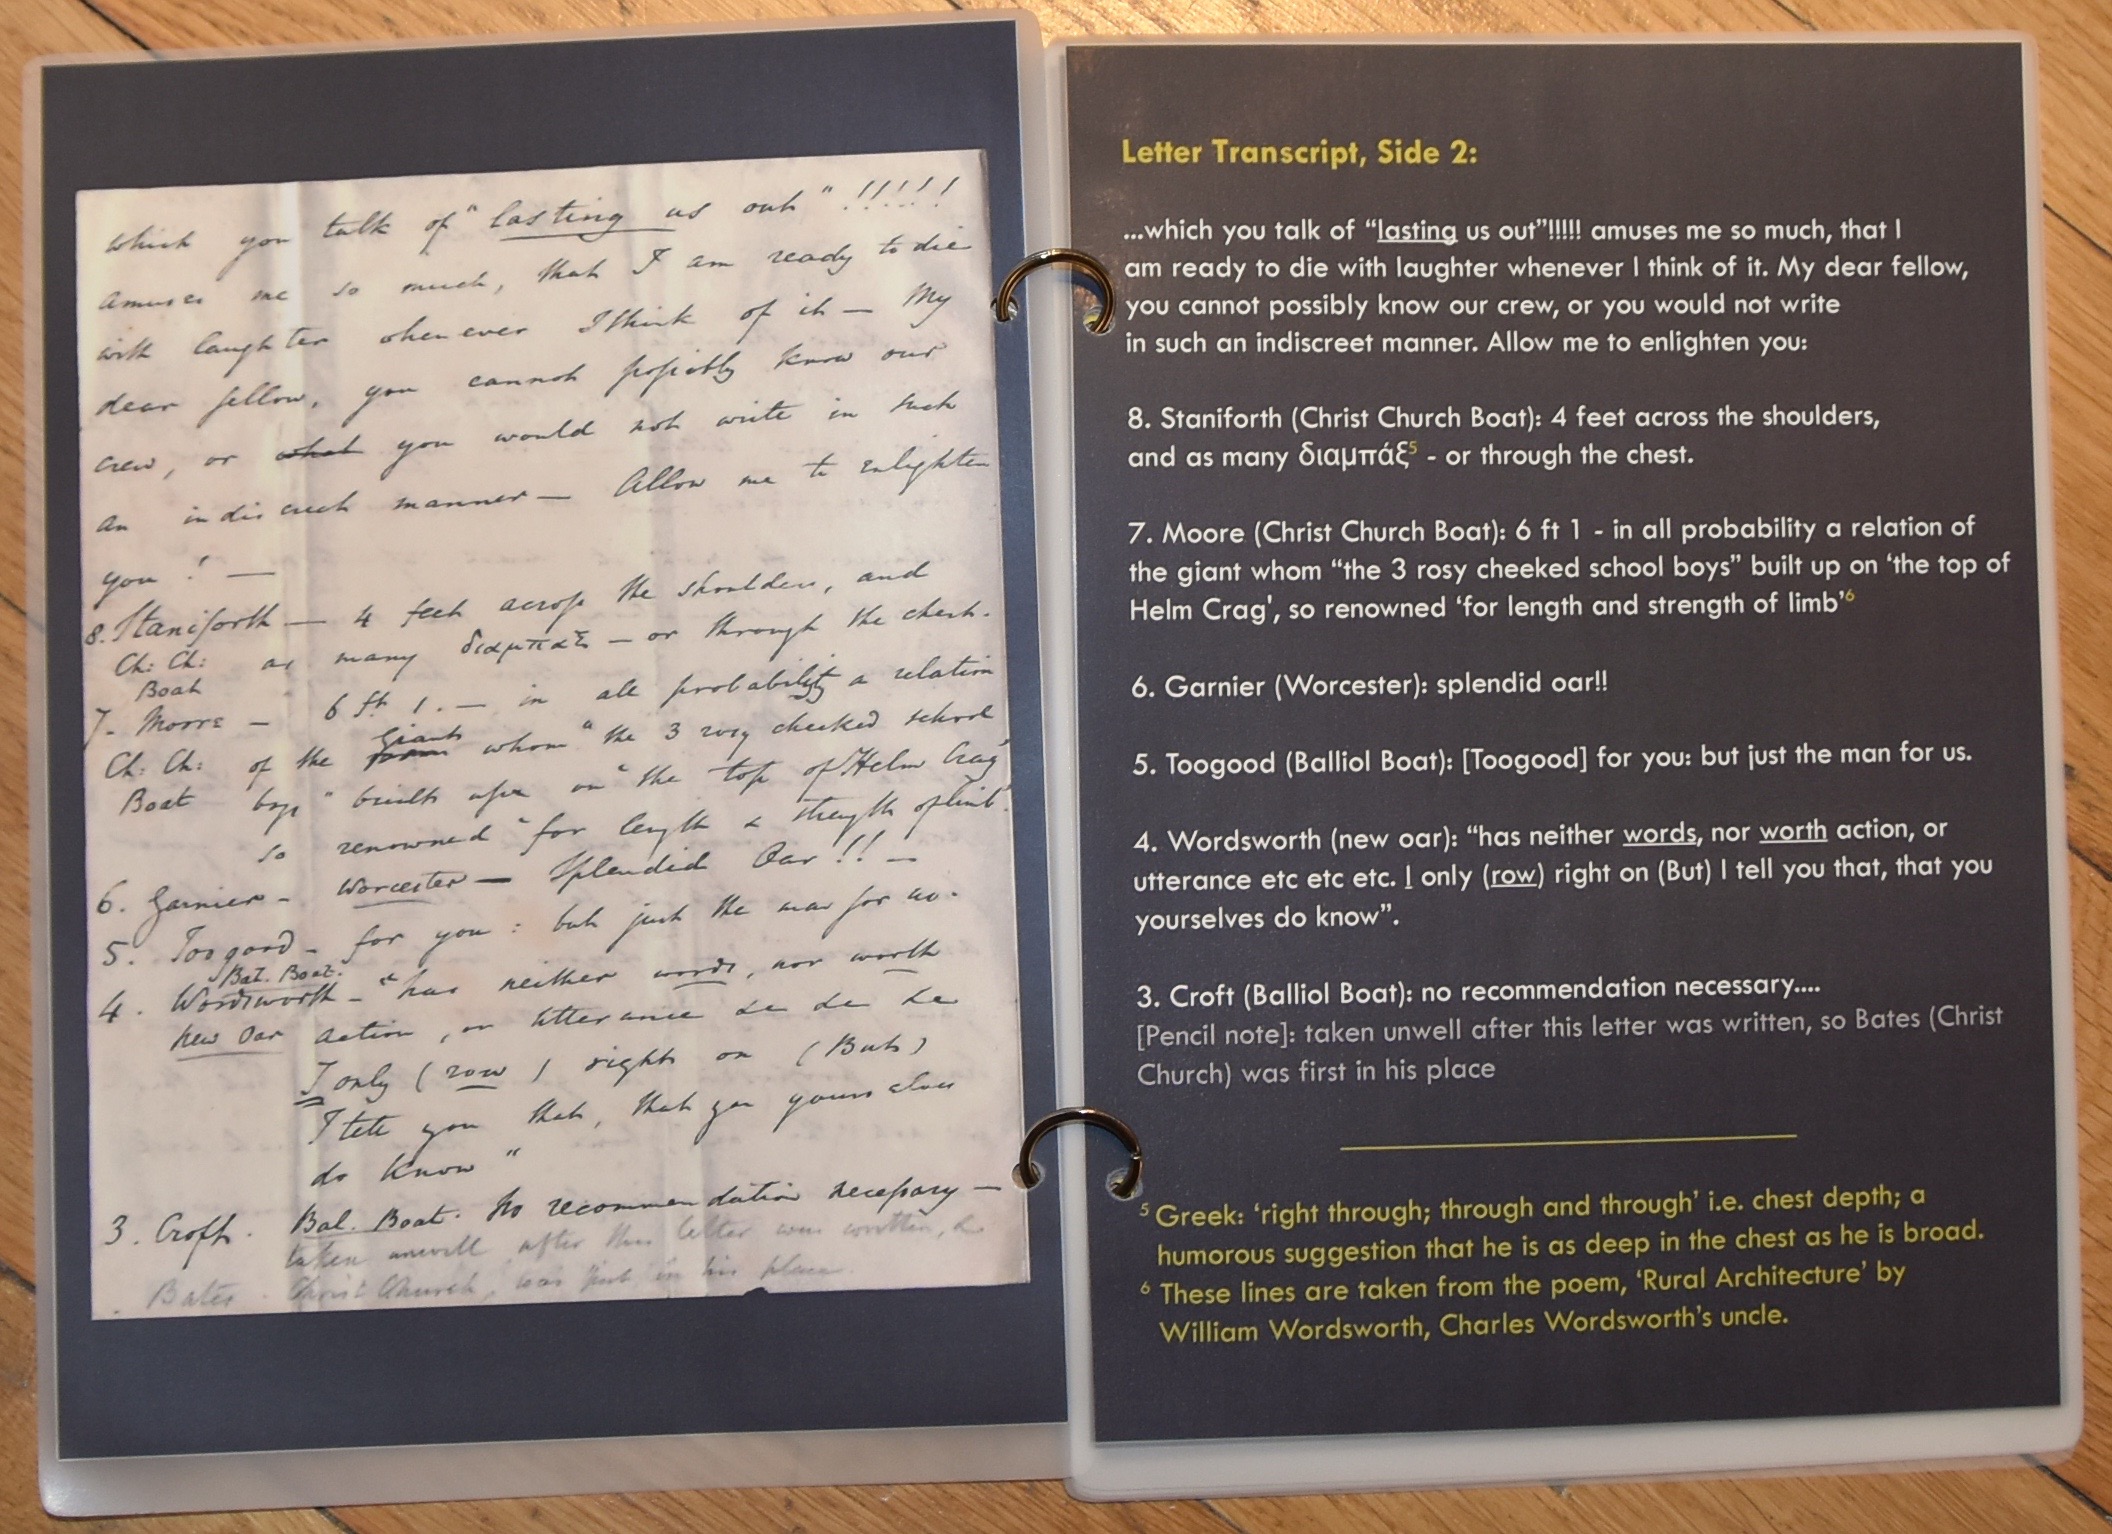 which you talk of "lasting us out" !!!!!
amuses me so much, that I am ready to die
with laughter whenever I think of it — My
dear fellow, you cannot possibly know our
crew, or what you would not write in such
an indiscreet manner — Allow me to enlighten
you ! —
8. Staniforth — 4 feet across the shoulders, and
Ch: Ch: as many διαμπαξ — or through the chest.
Boat
7. Moore — 6 ft 1. — in all probability a relation
Ch: Ch: of the giant whom "the 3 rosy cheeked school
Boat boys" built upon "the top of Helm Crag"
so renowned "for length & strength of limb".
6. Garnier - Worcester — Splendid Oar !! —
5. Toogood - for you : but just the man for us.
Bal. Boat.
4. Wordsworth - "has neither words, nor worth
New Oar action, or utterance &c &c &c
I only (row) right on (But)
I tell you that, that you yourselves
do know"
3. Croft. Bal. Boat. No recommendation necessary —
taken unwell after this letter was written, &
Bates Christ Church, was in his place
Letter Transcript, Side 2:
...which you talk of “lasting us out”!!!!! amuses me so much, that I
am ready to die with laughter whenever I think of it. My dear fellow,
you cannot possibly know our crew, or you would not write
in such an indiscreet manner. Allow me to enlighten you:
8. Staniforth (Christ Church Boat): 4 feet across the shoulders,
and as many διαμπάξ⁵ - or through the chest.
7. Moore (Christ Church Boat): 6 ft 1 - in all probability a relation of
the giant whom “the 3 rosy cheeked school boys” built up on ‘the top of
Helm Crag', so renowned ‘for length and strength of limb’⁶
6. Garnier (Worcester): splendid oar!!
5. Toogood (Balliol Boat): [Toogood] for you: but just the man for us.
4. Wordsworth (new oar): “has neither words, nor worth action, or
utterance etc etc etc. I only (row) right on (But) I tell you that, that you
yourselves do know”.
3. Croft (Balliol Boat): no recommendation necessary....
[Pencil note]: taken unwell after this letter was written, so Bates (Christ
Church) was first in his place
⁵ Greek: ‘right through; through and through’ i.e. chest depth; a
humorous suggestion that he is as deep in the chest as he is broad.
⁶ These lines are taken from the poem, ‘Rural Architecture’ by
William Wordsworth, Charles Wordsworth’s uncle.